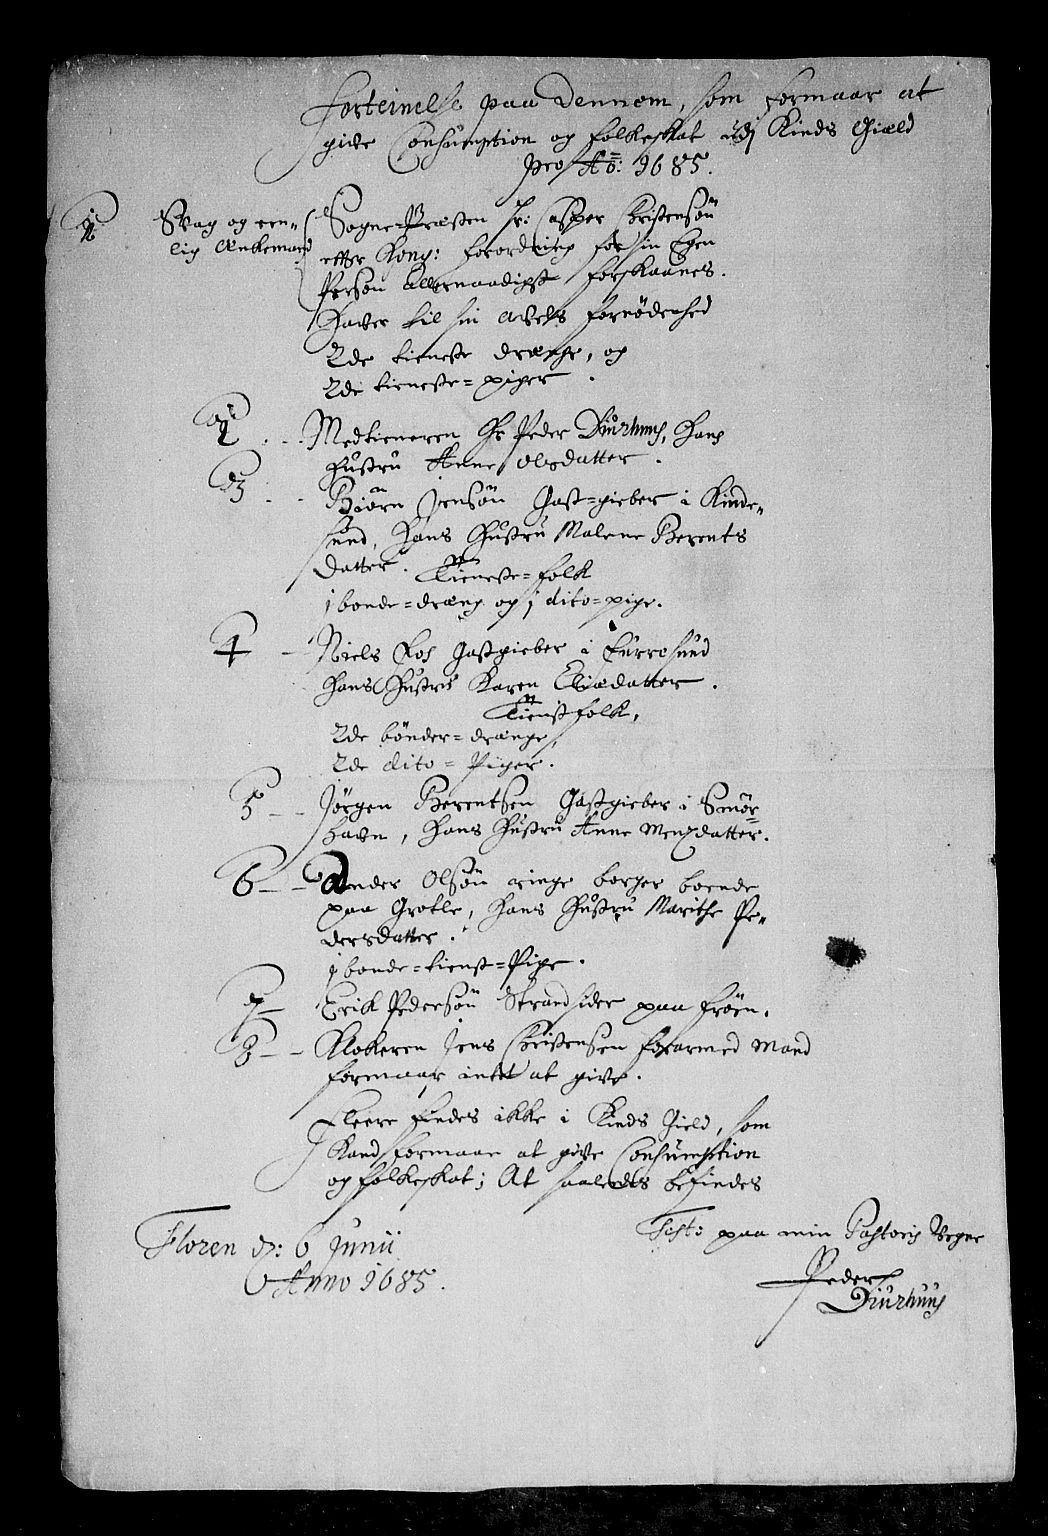 Forteinelse paa Dennem, som formaar at
give Consumption og folkeskat udj Kinds Gield
pro Ao: 1685.
1 Svag og een-
lig Enkemand
Sogne-Præsten Hr: Casper Christensøn
efter Kong: forordning for sin Egen
Person allernaadigst forskaanes.
Haver til sin avels fornødenhed
2de tieneste drænge, og
2de tieneste-piger.
2 Medtieneren Hr Peder Diurhuus, Hans
Hustru Anne Olsdatter.
3 Biørn Jensøn Gast-gieber i Kinde-
sund, Hans Hustru Malene Berents
datter. Tieneste-folk
1 bonde-dræng og 1 dito-pige.
4 Niels Fos Gastgieber i Furrosund
Hans Hustru Karen Eliædatter.
Tienistfolk,
2de bønder-drænge,
2de dito-Piger.
5 Jørgen Berentsen Gastgieber i Smør-
havn, Hans Hustru Anne Mentzdatter.
6 Ander Olsøn ringe borger boende
paa Grotle, Hans Hustru Marithe Pe-
dersdatter.
1 bonde-tienst-Pige.
7 Erik Pedersøn Strandsider paa Frøen.
8 Klokeren Jens Christensen forarmed Mand
formaar intet at give.
Fleere findes ikke i Kinds Gield, som
Kand formaar at give Consumption
og folkeskat; At saaledes befindes
Test: paa min Pastoris Vegne
Floren d: 6 Junii
Anno 1685.
Peder
Diurhuus